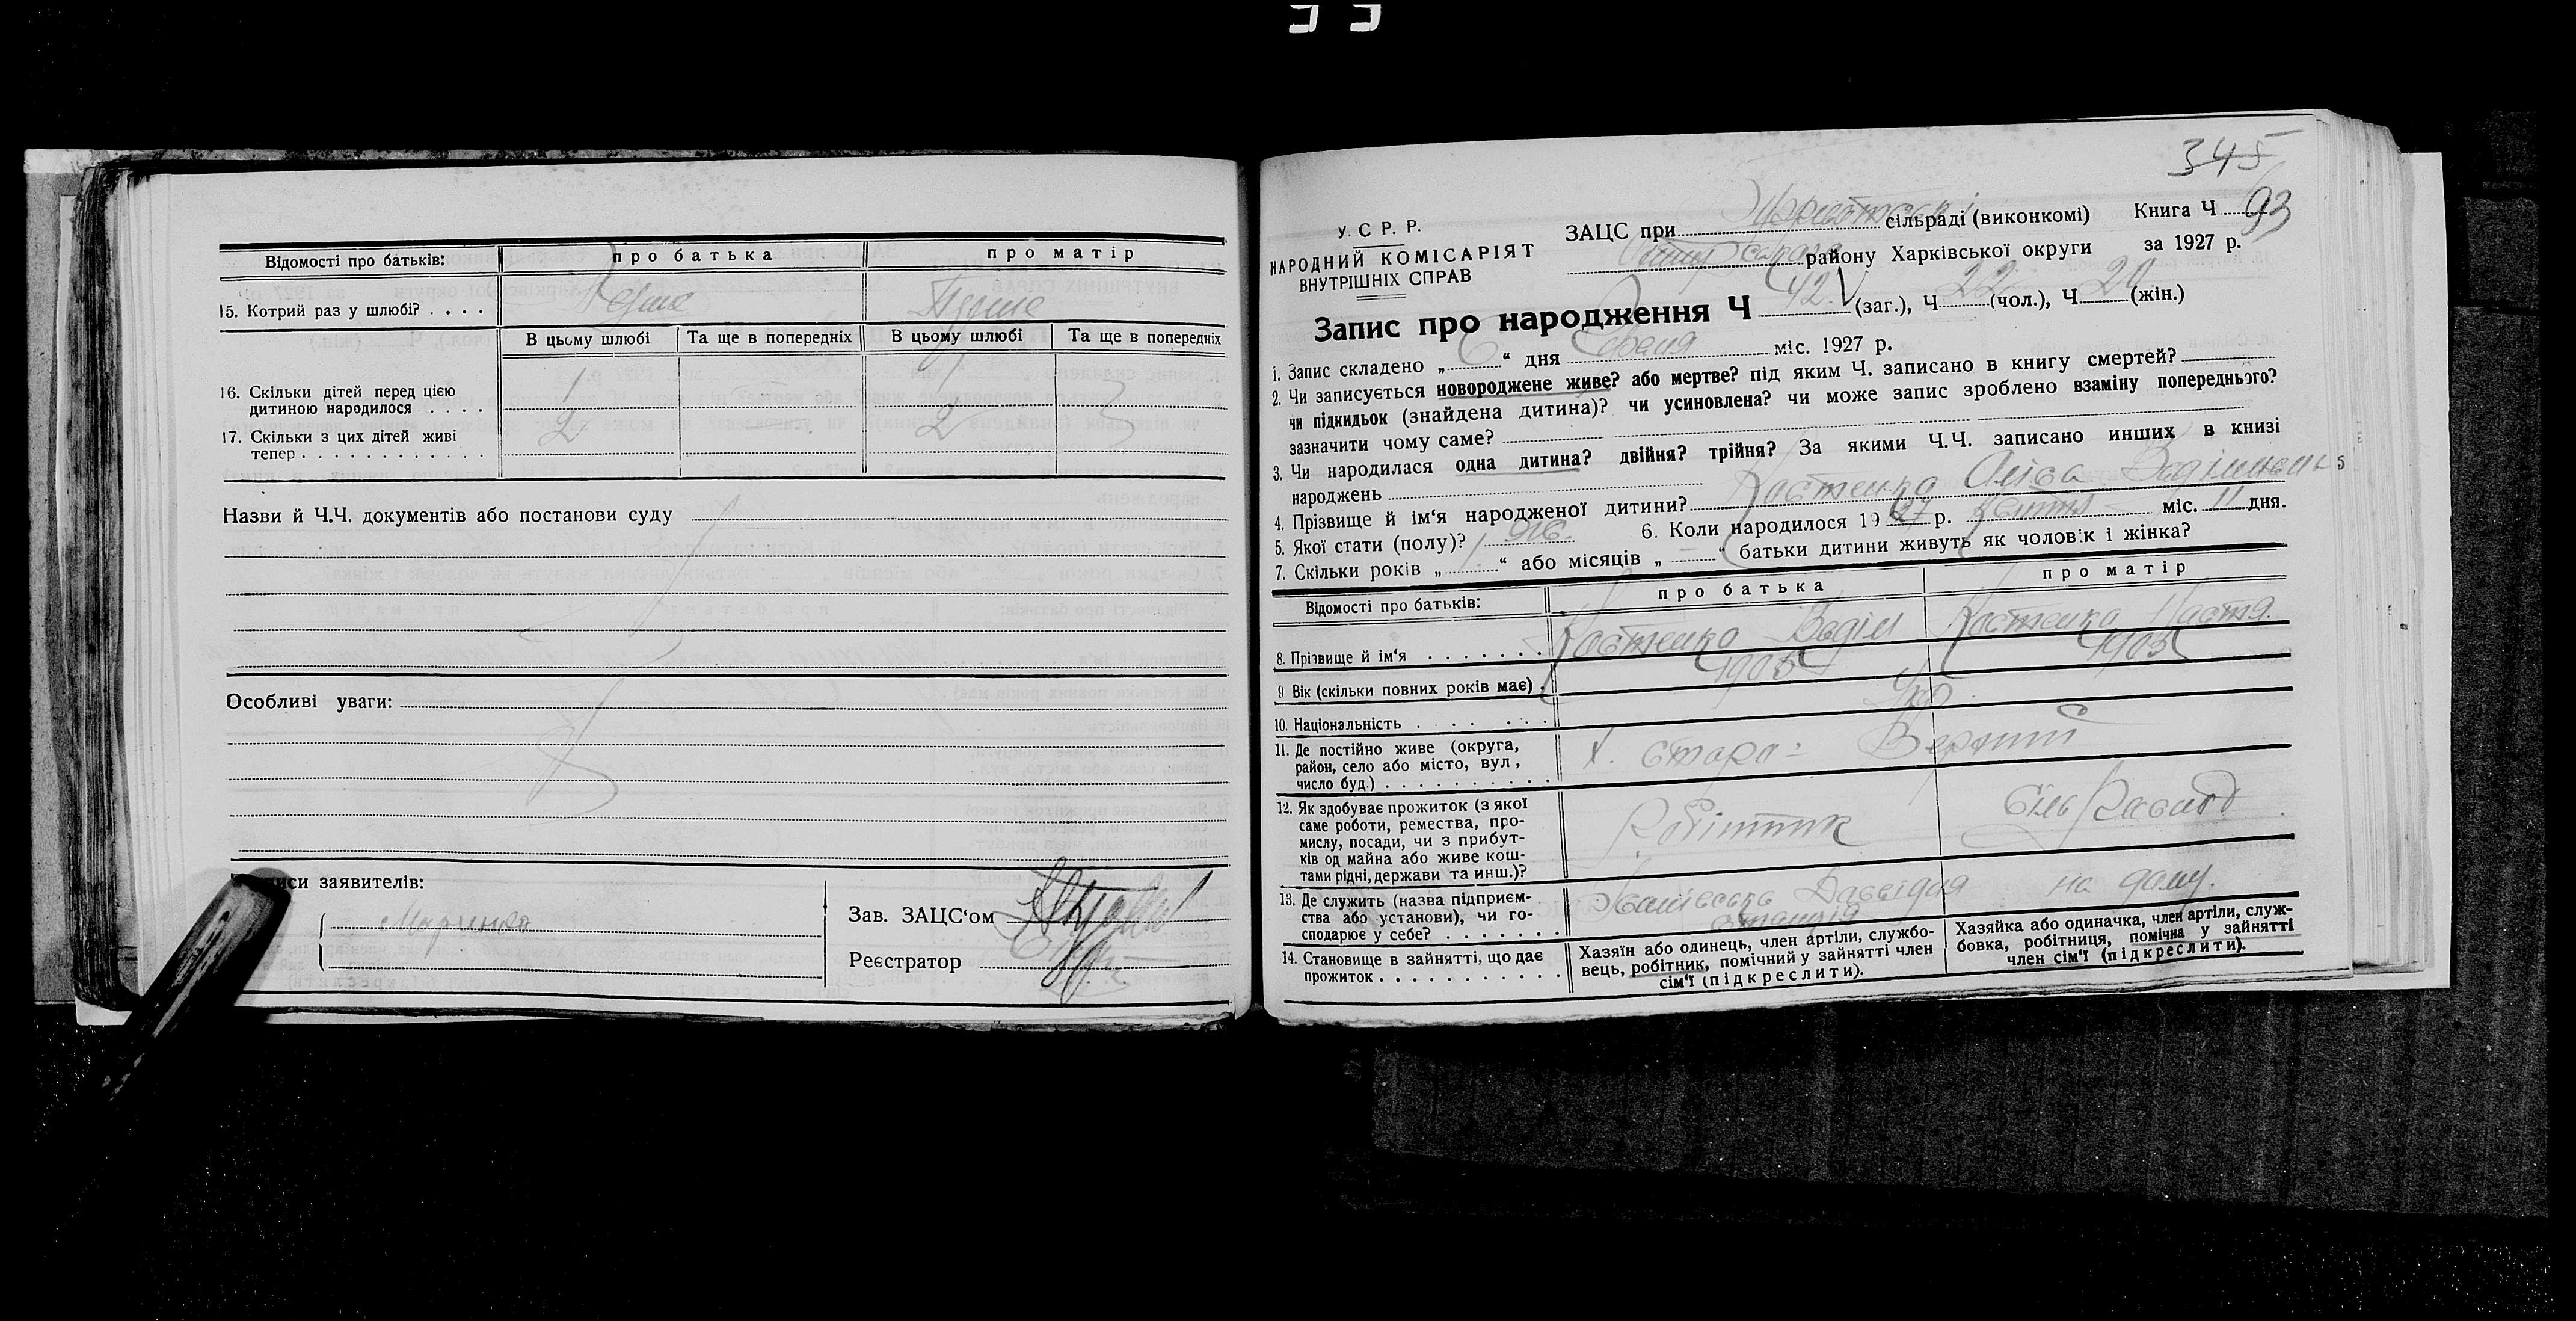 Відомості про батьків: про батька про матір
15. Котрий раз у шлюбі? . . . . Перше Перше
В цьому шлюбі Та ще в попередніх В цьому шлюбі Та ще в попередніх
16. Скільки дітей перед цією
дитиною народилося . . . . 1 1
17. Скільки з цих дітей живі
тепер . . . . . . . . . . . . 2 2
Назви й Ч.Ч. документів або постанови суду
Особливі уваги:
писи заявителів:
Зав. ЗАЦС‘ом
Реєстратор
345
У. С Р. Р.
НАРОДНИЙ КОМІСАРІЯТ
ВНУТРІШНІХ СПРАВ
ЗАЦС при сільраді (виконкомі) Книга Ч 93
району Харківської округи за 1927 р.
Запис про народження Ч 42 (заг.), Ч 22 (чол.), Ч 20 (жін.)
1. Запис складено „ 6 “ дня міс. 1927 р.
2. Чи записується новороджене живе? або мертве? під яким Ч. записано в книгу смертей?
чи підкидьок (знайдена дитина)? чи усиновлена? чи може запис зроблено взаміну попереднього?
зазначити чому саме?
3. Чи народилася одна дитина? двійня? трійня? За якими Ч.Ч. записано инших в книзі
народжень
4. Прізвище й ім‘я народженої дитини? Костенко Аліса
5. Якої стати (полу)? жіс. 6. Коли народилося 19 27 р. міс. 11 дня.
7. Скільки років „ “ або місяців „ – “ батьки дитини живуть як чоловік і жінка?
Відомості про батьків: про батька про матір
8. Прізвище й ім‘я . . . . . . . Костенко Вадім Костенко Настя.
9 Вік (скільки повних років має) . 1905 1905
10. Національність . . . . . . . Укр.
11. Де постійно живе (округа,
район, село або місто, вул,
число буд.) . . . . . . . . . . х. Старо-
12. Як здобуває прожиток (з якої
саме роботи, ремества, про-
мислу, посади, чи з прибут-
ків од майна або живе кош-
тами рідні, держави та инш.)? Робітник
13. Де служить (назва підприєм-
ства або установи), чи го-
сподарює у себе? . . . . . . . станція на дому.
14. Становище в зайнятті, що дає
прожиток . . . . . . . . . . .
Хазяїн або одинець, член артіли, службо-
вець, робітник, помічний у зайнятті член
сім‘ї (підкреслити).
Хазяйка або одиначка, член артіли, служ-
бовка, робітниця, помічна у зайнятті
член сім‘ї (підкреслити).